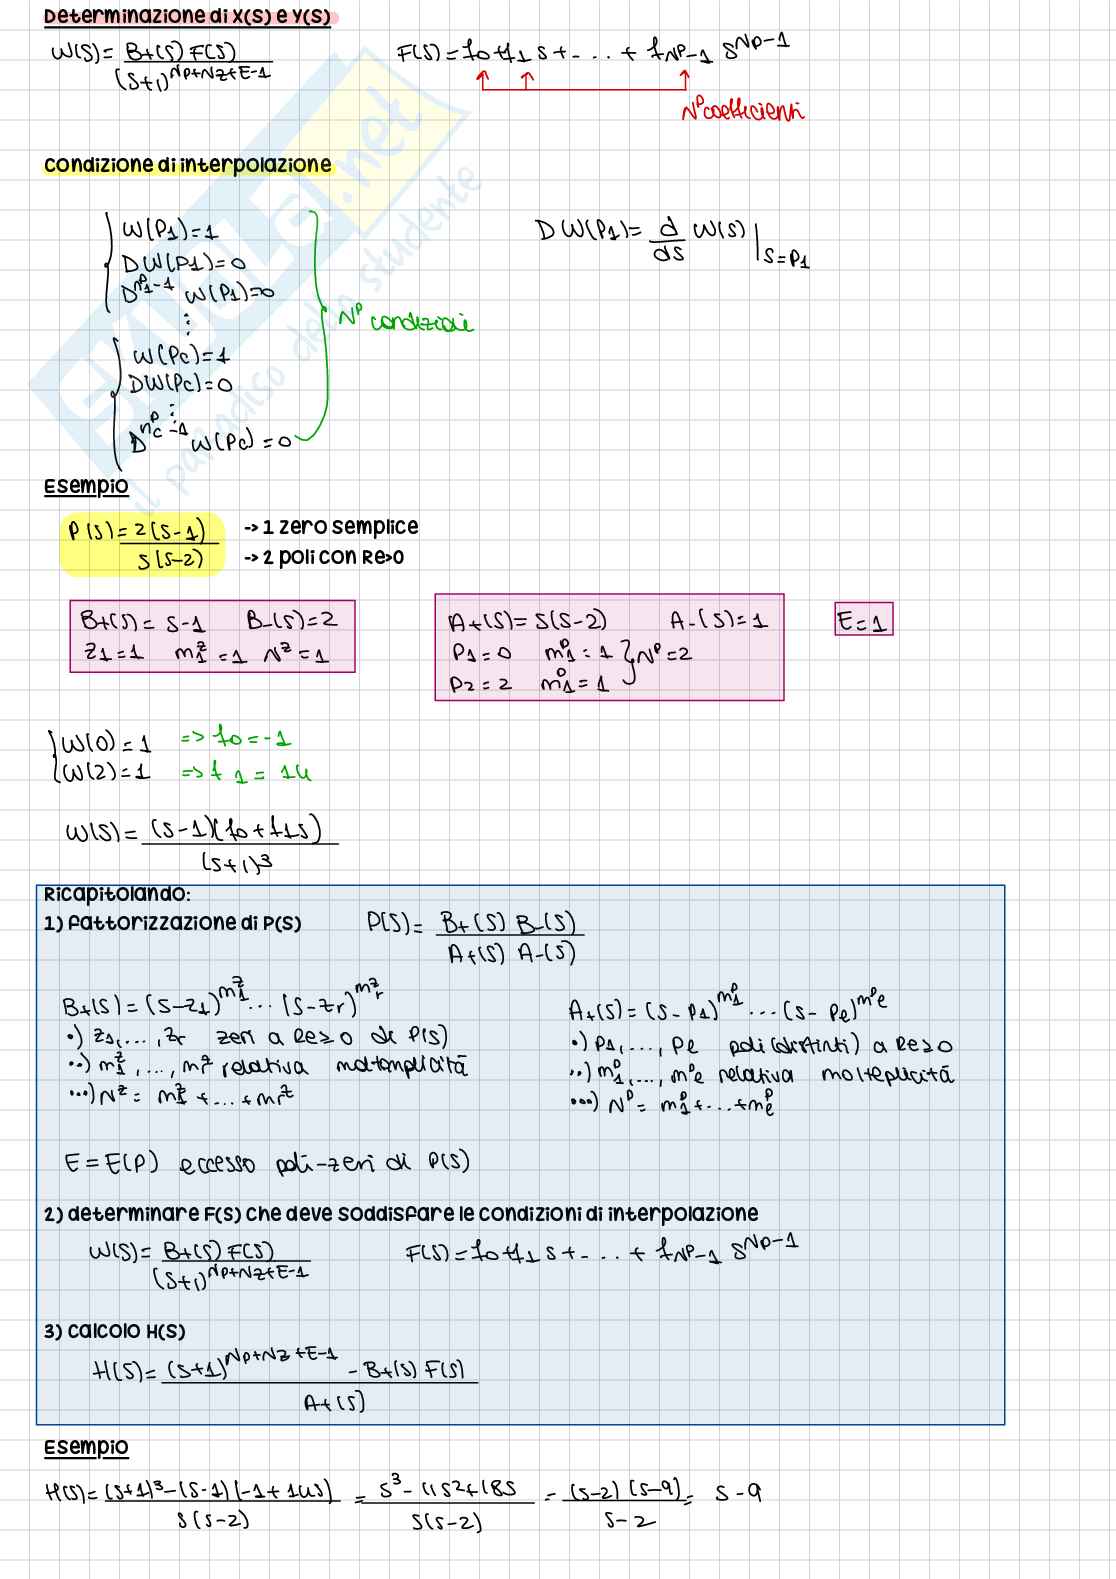 Determinazione di X(S) e Y(S)
W(S)= B+(S) F(S) / (S+1)^NP+NZ+E-1 F(S)= f0+f1 S+-...+ fNP-1 S^NP-1
N^P coefficienti
condizione di interpolazione
W(P1)=1
DW(P1)=0
D^n1^P-1 W(P1)=0
⋮
W(Pc)=1
DW(Pc)=0
⋮
D^nc^P-1 W(Pc)=0
N^P condizioni
DW(P1)= d/ds W(S) | S=P1
Esempio
P(S)= 2(S-1) / S(S-2)
-> 1 zero semplice
-> 2 poli con Re>0
B+(S)= S-1 B-(S)=2
Z1=1 m1^Z=1 N^Z=1
A+(S)= S(S-2) A-(S)=1
P1=0 m1^P=1 } N^P=2
P2=2 m1^P=1
E=1
W(0)=1 => f0=-1
W(2)=1 => f1=14
W(S)= (S-1)(f0+f1S) / (S+1)^3
Ricapitolando:
1) fattorizzazione di P(S) P(S)= B+(S) B-(S) / A+(S) A-(S)
B+(S)=(S-Z1)^m1^Z...(S-Zr)^mr^Z
•) Z1,...,Zr zeri a Re≥0 di P(S)
••) m1^Z,...,mr^Z relativa moltemplicità
•••) N^Z= m1^Z+...+mr^Z
A+(S)=(S-P1)^m1^P...(S-Pe)^m^Pe
•) P1,...,Pe poli (distinti) a Re≥0
••) m1^P,...,m^Pe relativa molteplicità
•••) N^P= m1^P+...+me^P
E=E(P) eccesso poli-zeri di P(S)
2) determinare F(S) che deve soddisfare le condizioni di interpolazione
W(S)= B+(S) F(S) / (S+1)^NP+NZ+E-1 F(S)= f0+f1 S+-...+ fNP-1 S^NP-1
3) calcolo H(S)
H(S)= (S+1)^NP+NZ+E-1 - B+(S) F(S) / A+(S)
Esempio
H(S)= (S+1)^3-(S-1)(-1+14S) / S(S-2) = S^3-11S^2+18S / S(S-2) = (S-2)(S-9) / S-2 = S-9
SKUOLA.net
il paradiso dello studente